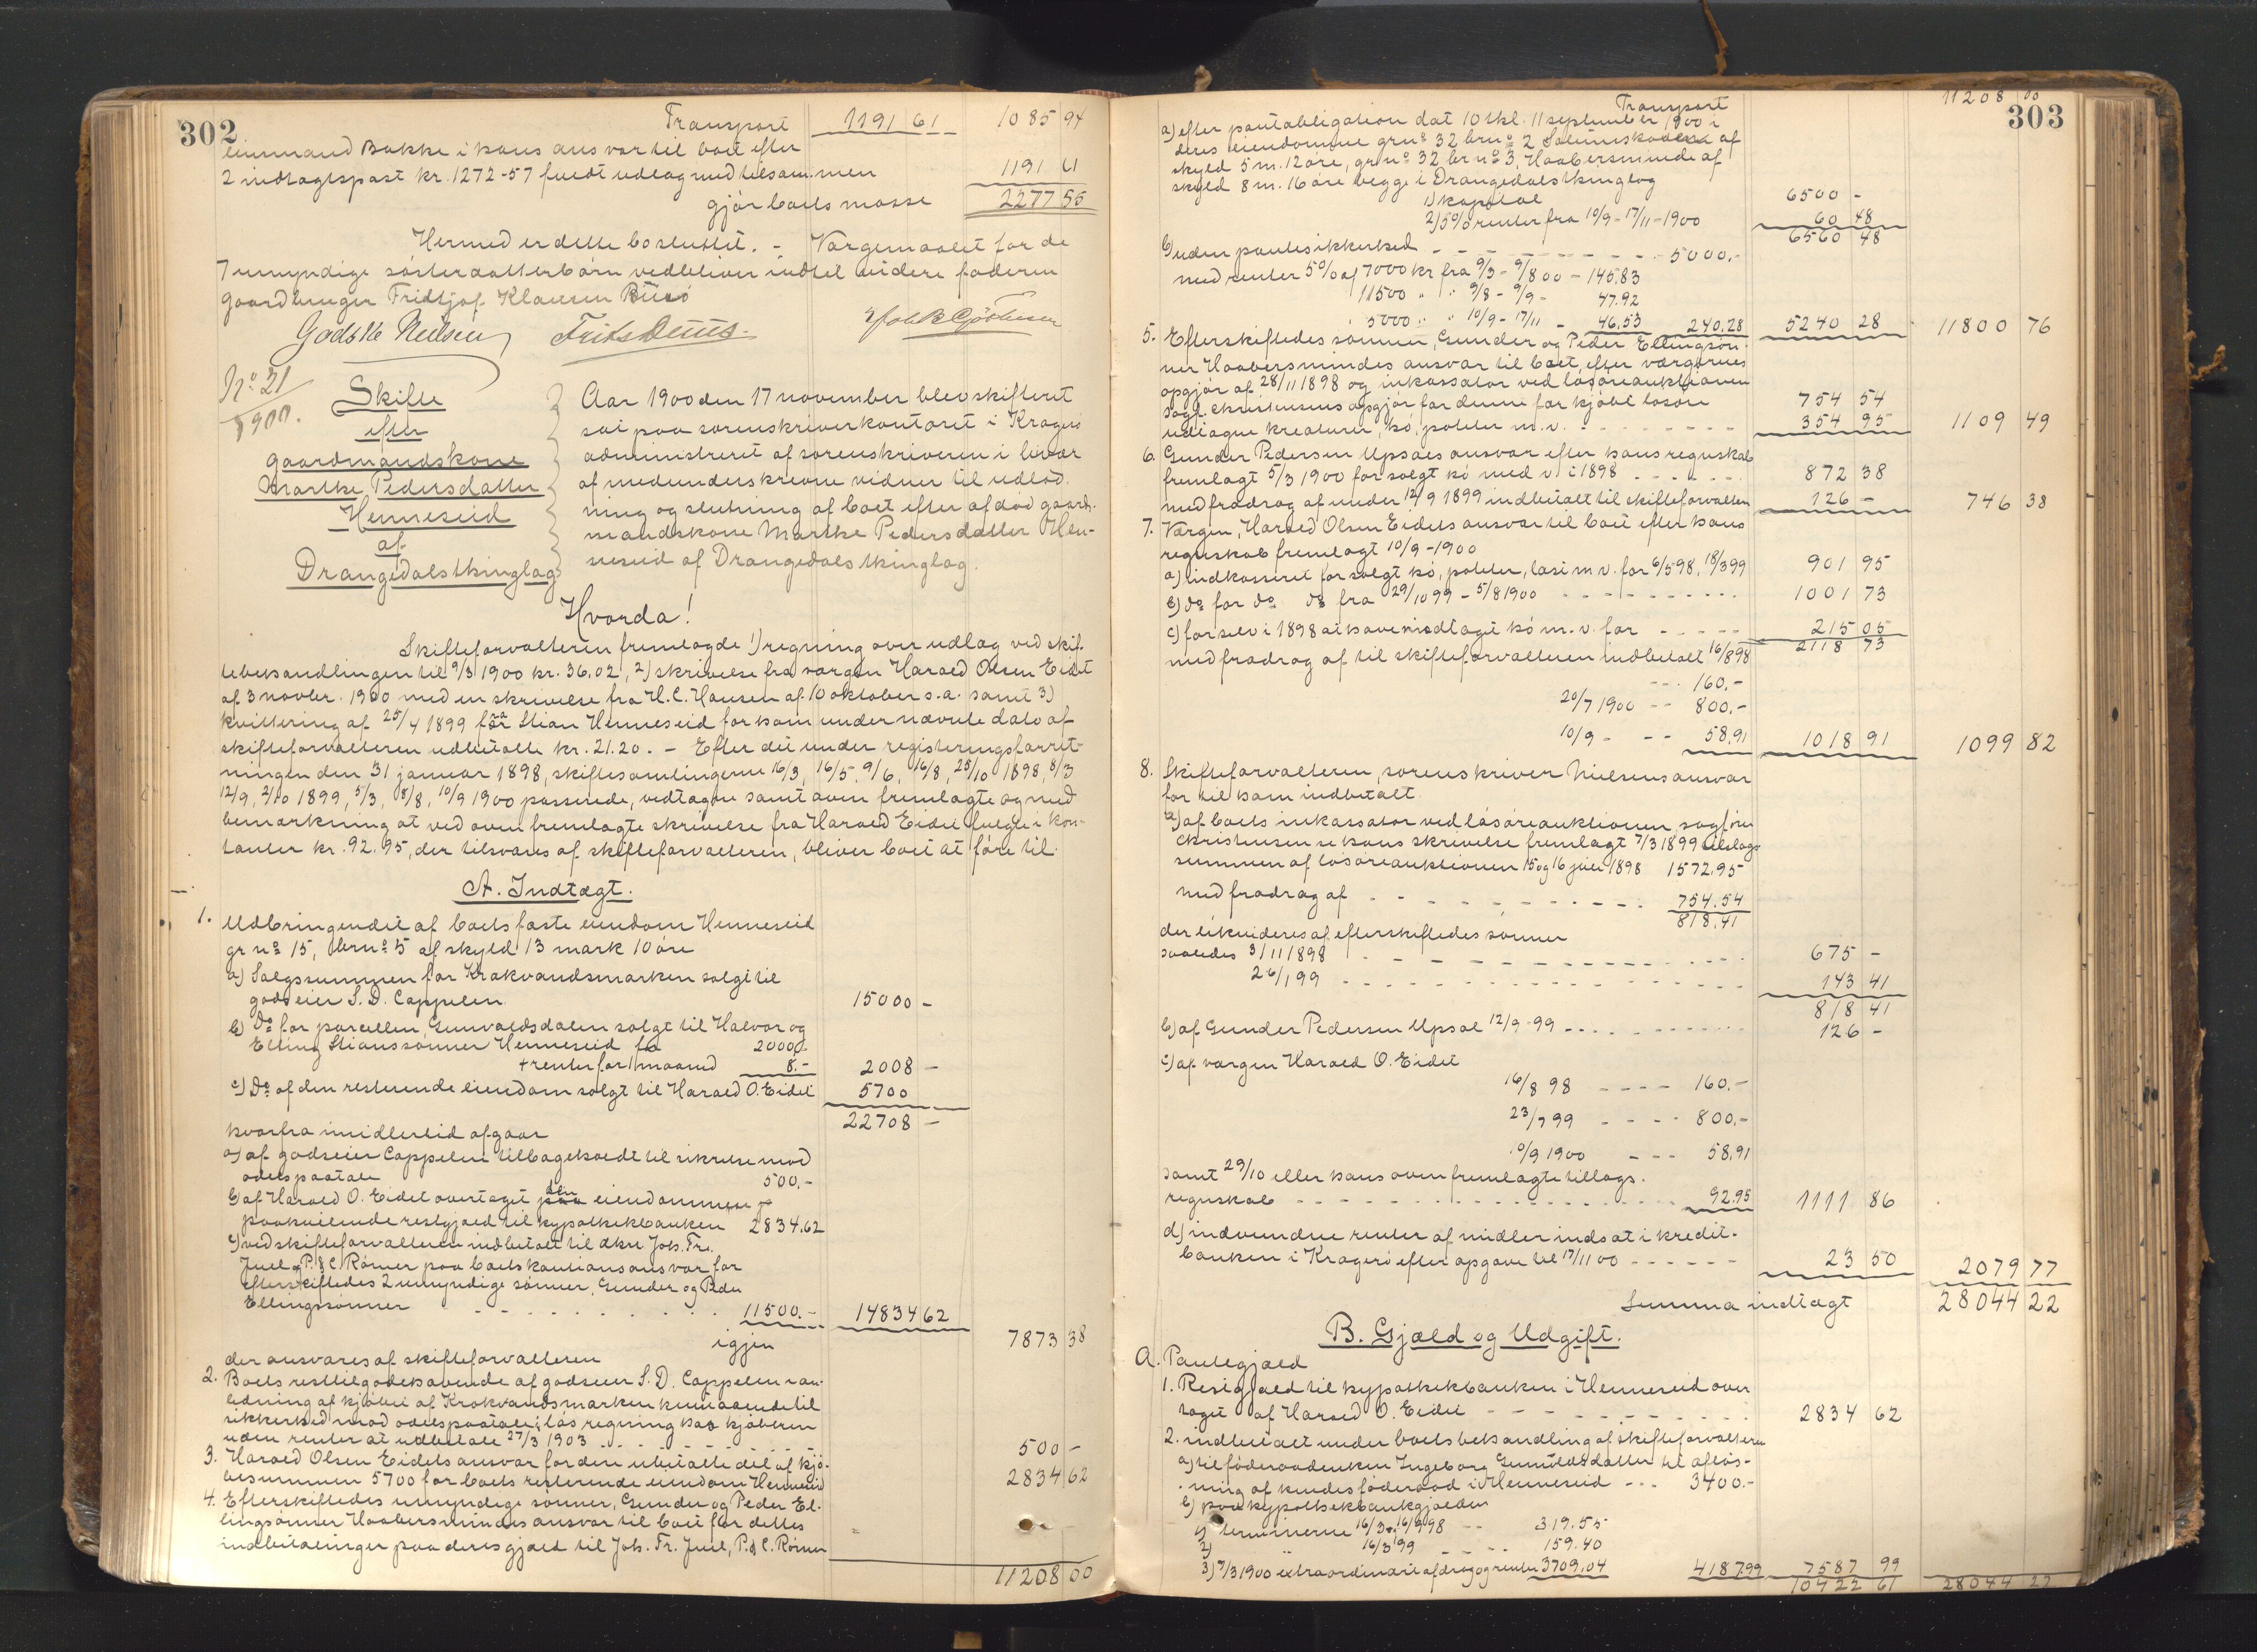 302
Transport 1191 61 1085 94
Bakke i hans ansvar til boet efter
2 indtægtspost kr. 1272-57 fuldt udlæg med tilsammen 1191 61
gjør boets masse 2277 55
Hermed er dette bo sluttet. - Værgemaalet for de
7 umyndige søsterdatterbørn vedbliver indtil videre faderen
gaardbruger Fridtjof Klausen
No 21
1900.
Skifte
efter
gaardmandskone
Marthe Pedersdatter
Henneseid
af
Drangedals thinglag
Aar 1900 den 17 november blev skifteret
sat paa sorenskriverkontoret i Kragerø
administreret af sorenskriveren i nævær
af medunderskrevne vidner til udlod-
ning og slutning af boet efter afdød gaard-
mandskone Marthe Pedersdatter Hen-
neseid af Drangedals thinglag.
Hvorda!
Skifteforvalteren fremlagde 1) regning over udlæg ved skif-
tebehandlingen til 9/3 1900 kr. 36.02, 2) skrivelse fra værgen Harald Olsen Eidet
af 3 novbr. 1900 med en skrivelse fra H. C. Hansen af 10 oktober s.a. samt 3)
kvittering af 25/4 1899 fra Stian Henneseid for ham under nævnte dato af
skifteforvalteren udbetalte kr. 21.20. - Efter det under registreringsforret-
ningen den 31 januar 1898, skiftesamlingerne 16/3, 16/5, 9/6, 16/8, 25/10 1898, 8/3
12/9, 2/10 1899, 5/3, 8/8, 10/9 1900 passerede, vedtagne samt oven fremlagte og med
bemærkning at ved oven fremlagte skrivelse fra Harald Eidet fulgte i kon-
tanter kr. 92.95, der tilsvares af skifteforvalteren, bliver boet at føre til
A. Indtægt.
1. Udbringendet af boets faste eiendom Henneseid
gr no 15, brno 5 af skyld 13 mark 10 øre
a) Salgssummen for Krokvandsmarken solgt til
godseier S. D. Cappelen 15000 -
b) Do for parcellen Gunvaldsdalen solgt til Halvor og
Elling Stianssønner Henneseid for 2000.-
+ renter for 1 maaned 8.- 2008 -
c) Do af den resterende eiendom solgt til Harald O. Eidet 5700
22708 -
hvorfra imidlertid afgaar
a) af godseier Cappelen tilbageholdt til sikrelse mod
odelspaatale 500.-
b) af Harald O. Eidet overtaget den eiendommen
paahvilende restgjæld til hypothekbanken 2834.62
c) ved skifteforvalteren indbetalt til dhrr Joh. Fr.
Juel og P. & C. Rømer paa boets kautionsansvar for
efterskiftedes 2 umyndige sønner, Gunder og Peder
Ellingssønner 11500.- 14834 62
igjen 7873 38
der ansvares af skifteforvalteren
2. Boets resttilgodehavende af godseier S. D. Cappelen i an-
ledning af kjøbet af Krokvandsmarken
sikkerhed mod odelspaatale; regning hos kjøberen
uden renter at udbetale 27/3 1903 500 -
3. Harald Olsen Eidets ansvar for den ubetalte del af kjø-
besummen 5700 for boets resterende eiendom Henneseid 2834 62
4. Efterskiftedes umyndige sønner, Gunder og Peder El-
lingsønner Haabersmindes ansvar til boet for dettes
indbetalinger paa deres gjæld til Joh. Fr. Juel, P. & C. Rømer
11208 00
303
Transport 11208 00
a) efter pantobligation dat 10 thl. 11 september 1900 i
deres eiendomme gr no 32 brno 2 af
skyld 5 m. 12 øre, gr no 32 br no 3, Haabersminde af
skyld 8 m. 16 øre begge i Drangedals thinglag
1) kapital 6500 -
2) 5% renter fra 10/9 - 17/11 - 1900 60 48
6560 48
b) uden pantesikkerhed 5000.-
med renter 5% af 7000 kr fra 9/3 - 9/8 00 - 145.83
11500 " " 9/8 - 9/9 - 47.92
5000 " " 10/9 - 17/11 - 46.53 240.28 5240 28 11800 76
5. Efterskiftedes sønner, Gunder og Peder Ellingsøn-
ner Haabersmindes ansvar til boet, efter værgernes
opgjør af 28/11 1898 og inkassator ved løsøreauktionen
sagf. Christensens opgjør for denne for kjøbt løsøre 754 54
udtagne kreaturer, hø, poteter m.v. 354 95 1109 49
6. Gunder Pedersen Upsals ansvar efter hans regnskab
fremlagt 5/3 1900 for solgt hø med v. i 1898 872 38
med fradrag af under 12/9 1899 indbetalt til skifteforvalteren 126 - 746 38
7. Værgen, Harald Olsen Eidets ansvar til boet efter hans
regnskab fremlagt 10/9 - 1900
a) indkasseret for solgt hø, poteter, m.v. for 6/5 98, 18/3 99 901 95
b) do for do do fra 29/10 99 - 5/8 1900 1001 73
c) for selv i 1898 at have modtaget hø m.v. for 215 05
2118 73
med fradrag af til skifteforvalteren indbetalt 16/8 98
160.-
20/7 1900 -- 800.-
10/9 - -- 58.91 1018 91 1099 82
8. Skifteforvalteren, sorenskriver Nielsens ansvar
for til ham indbetalt
a) af boets inkassator ved løsøreauktionen sagfører
Christensen se hans skrivelse fremlagt 7/3 1899 tilslags-
summen af løsøreauktionen 15 og 16 juli 1898 1572.95
med fradrag af 754.54
818.41
der likvideres af efterskiftedes sønner
saaledes 3/11 1898 675 -
26/1 99 143 41
818 41
b) af Gunder Pedersen Upsal 12/9 - 99 126 -
c) af værgen Harald O. Eidet
16/8 98 ---- 160.-
23/7 99 ---- 800.-
10/9 1900 --- 58.91
samt 29/10 efter hans oven fremlagte tillægs-
regnskab 92.95 1111 86
d) indvundne renter af midler indsat i kredit-
banken i Kragerø efter opgave til 17/11 00 23 50 2079 77
Summa indtægt 28044 22
B. Gjæld og Udgift.
A. Pantegjæld
1. Restgjæld til hypothekbanken i Henneseid over
taget af Harald O. Eidet 2834 62
2. indbetalt under boets behandling af skifteforvalteren
a) til føderaadenken Ingeborg Gunuldsdatter til afløs-
ning af hendes føderaad i Henneseid --- 3400.-
b) paa hypothekbankgjælden
1) terminerne 16/3 16/9 98 319.55
2) 16/3 99 159.40
3) 7/3 1900 extraordinært afdrag og renter 3709.04 4187.99 7587 99
10422 61 28044 22